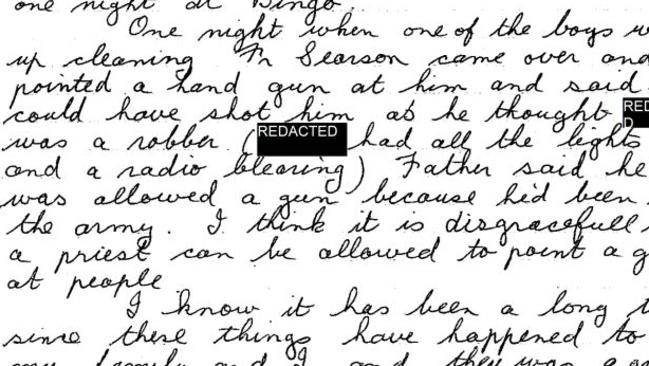 one night at Bingo.
One night when one of the boys w
up cleaning Fr Searson came over and
pointed a hand gun at him and said
could have shot him as he thought RED
D
was a robber (REDACTED had all the lights
and a radio blearing) Father said he
was allowed a gun because he'd been
the army. I think it is disgracefull
a priest can be allowed to point a g
at people
I know it has been a long t
since these things have happened to
my family and I and they was